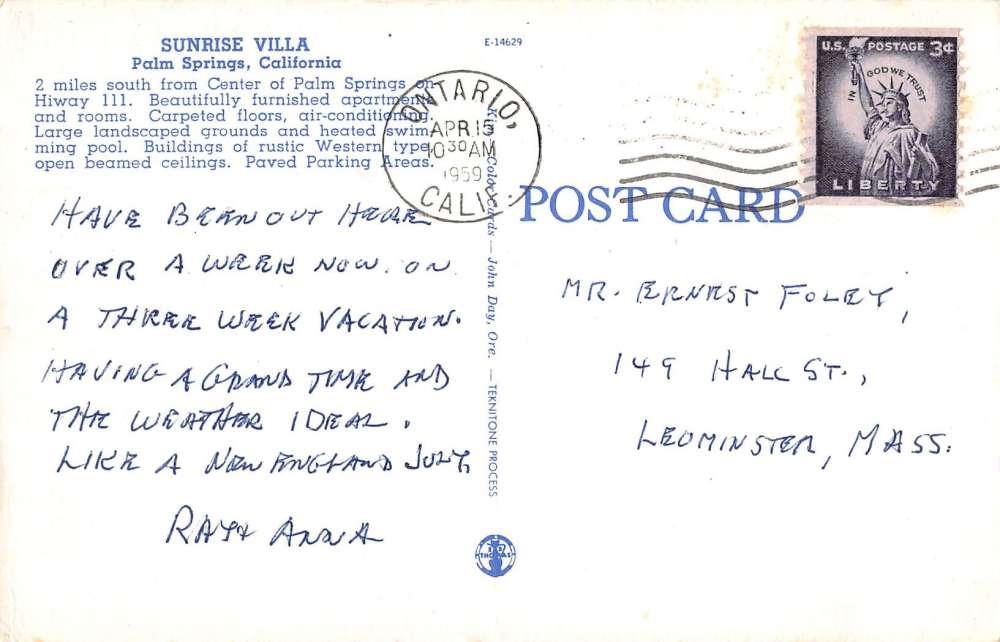 SUNRISE VILLA
Palm Springs, California
2 miles south from Center of Palm Springs on
Hiway 111. Beautifully furnished apartments
and rooms. Carpeted floors, air-conditioning.
Large landscaped grounds and heated swim-
ming pool. Buildings of rustic Western type,
open beamed ceilings. Paved Parking Areas.
E-14629
ONTARIO,
APR 15
10 30 AM
1959
CALIF.
U.S. POSTAGE 3¢
IN GOD WE TRUST
LIBERTY
POST CARD
HAVE BEEN OUT HERE
OVER A WEEK NOW. ON
A THREE WEEK VACATION.
HAVING A GRAND TIME AND
THE WEATHER IDEAL.
LIKE A NEW ENGLAND JULY.
RAY + ANNA
Color Cards — John Day, Ore. — TEKNITONE PROCESS
THOMAS
MR. ERNEST FOLEY,
149 HALL ST.,
LEOMINSTER, MASS.